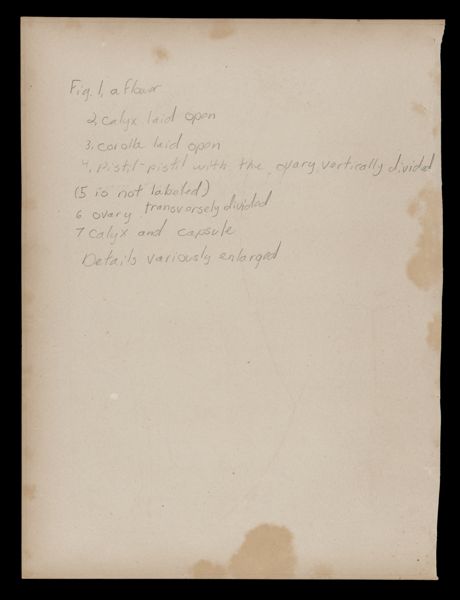 Fig. 1, a flower
2, calyx laid open
3, corolla laid open
4, Pistil-pistil with the ovary vertically divided
(5 is not labeled)
6 ovary transversely divided
7 calyx and capsule
Details variously enlarged